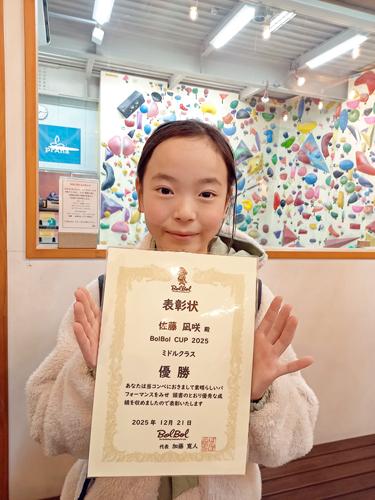 prAna
BolBol
表彰状
佐藤 凪咲 殿
BolBol CUP 2025
ミドルクラス
優勝
あなたは当コンペにおきまして素晴らしいパ
フォーマンスをみせ 頭書のとおり優秀な成
績を収めましたので表彰いたします
2025年 12月 21日
BolBol
代表 加藤 寛人